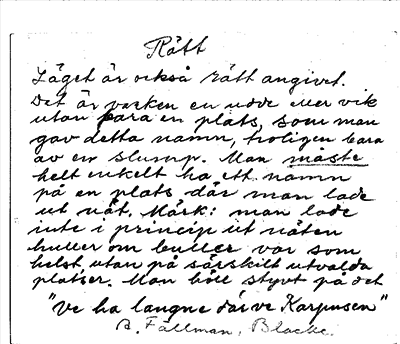 Rätt
Läget är också rätt angivet.
Det är varken en udde eller vik
utan bara en plats, som man
gav detta namn, troligen bara
av en slump. Man måste
helt enkelt ha ett namn
på en plats där man lade
ut nät. Märk: man lade
inte i princip ut näten
huller om buller var som
helst utan på särskilt utvalda
platser. Man höll styvt på det
"Ve ha laugne där ve Karpusen"
B. Fällman, Blacke.